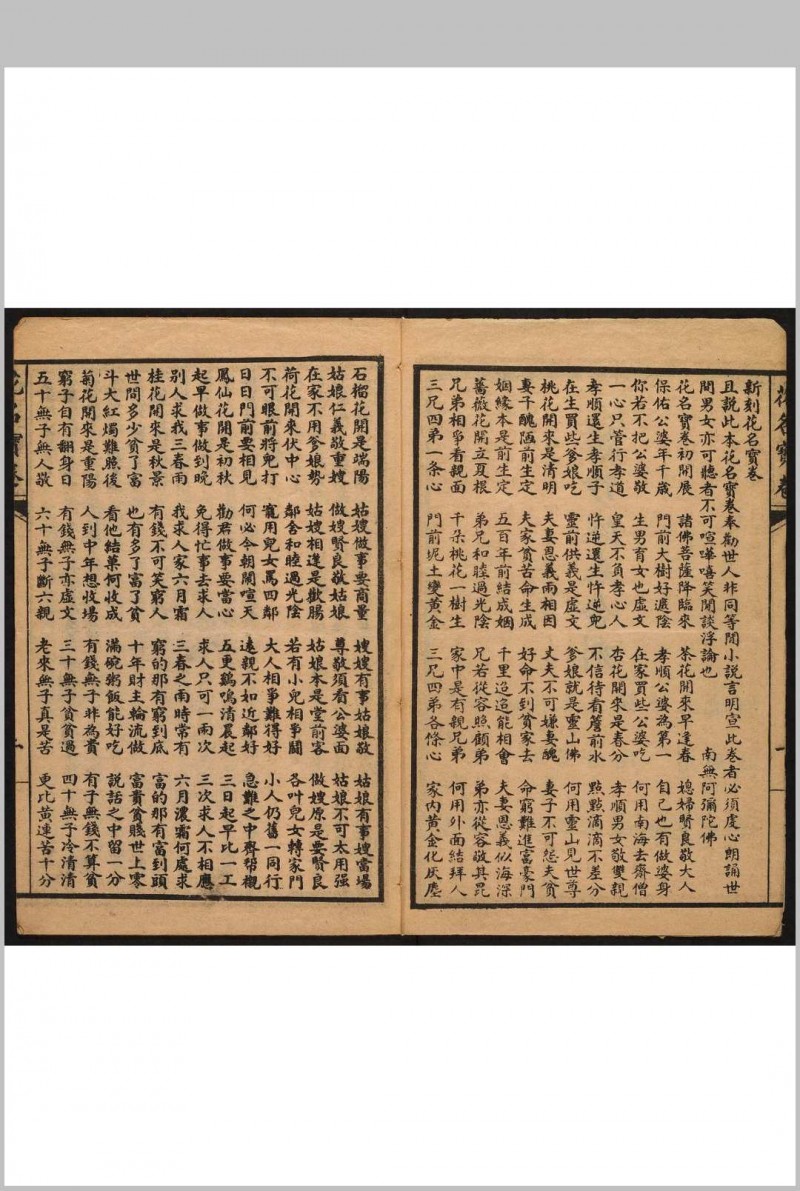 新刻花名寶卷
且說此本花名寶卷奉勸世人非同等閒小說言明宣此卷者必須虔心朗誦世
間男女亦可聽者不可喧嘩嘻笑閒談浮論也　南無阿彌陀佛
花名寶卷初開展　諸佛菩薩降臨來　茶花開來早逢春　媳婦賢良敬大人
保佑公婆年千歲　門前大樹好遮陰　孝順公婆為第一　自己也有做婆身
你若不把公婆敬　生男育女也虛文　在家買些公婆吃　何用南海去齋僧
一心只管行孝道　皇天不負孝心人　杏花開來是春分　孝順男女敬雙親
孝順還生孝順子　忤逆還生忤逆兒　不信待看簷前水　點點滴滴不差分
在生買些爹娘吃　靈前供義是虛文　爹娘就是靈山佛　何用靈山見世尊
桃花開來是清明　夫妻恩義兩相因　丈夫不可嫌妻醜　妻子不可怨夫貧
妻千醜陋前生定　夫家貧苦命生成　好命不到貧家去　命窮難進富豪門
姻緣本是前生定　五百年前結成姻　千里迢迢能相會　夫妻恩義似海深
薔薇花開立夏根　弟兄和睦過光陰　兄若從容照顧弟　弟亦從容敬其昆
兄弟相爭看親面　千朵桃花一樹生　家中是有親兄弟　何用外面結拜人
三兄四弟一條心　門前坭土變黃金　三兄四弟各條心　家內黃金化灰塵
花名寶卷
石榴花開是端陽　姑嫂做事要商量　嫂嫂有事姑娘敬　姑娘有事嫂當場
姑娘仁義敬重嫂　做嫂賢良敬姑娘　尊敬須看公婆面　姑娘不可太用强
在家不用爹娘勢　姑嫂相逢是歡腸　姑娘本是堂前客　做嫂原是要賢良
荷花開來伏中心　鄰舍和睦過光陰　若有小兒相爭鬪　各叶兒女轉家門
不可眼前將兒打　寃用兒女罵四鄰　大人相爭難得好　小人仍舊一同行
日日門前要相見　何必今朝鬧喧天　遠親不如近鄰好　急難之中齊幫襯
鳳仙花開是初秋　勸君做事要當心　五更鷄鳴清晨起　三日起早比一工
起早做事做到晚　免得忙事去求人　求人只可一兩次　三次求人不相應
別人求我三春雨　我求人家六月霜　三春之雨時常有　六月濃霜何處求
桂花開來是秋景　有錢不可笑窮人　窮的那有窮到底　富的那有富到頭
世間多少貧了富　也有多了富了貧　十年財主輪流做　富貴貧賤世上零
斗大紅燭難照後　看他結菓何收成　滿碗粥飯能好吃　說話之中留一分
菊花開來是重陽　人到中年想收場　有錢無子非為貴　有子無錢不算貧
窮子自有翻身日　有錢無子亦虛文　三十無子貧貧過　四十無子冷清清
五十無子無人敬　六十無子斷六親　老來無子真是苦　更比黃連苦十分
花名寶卷